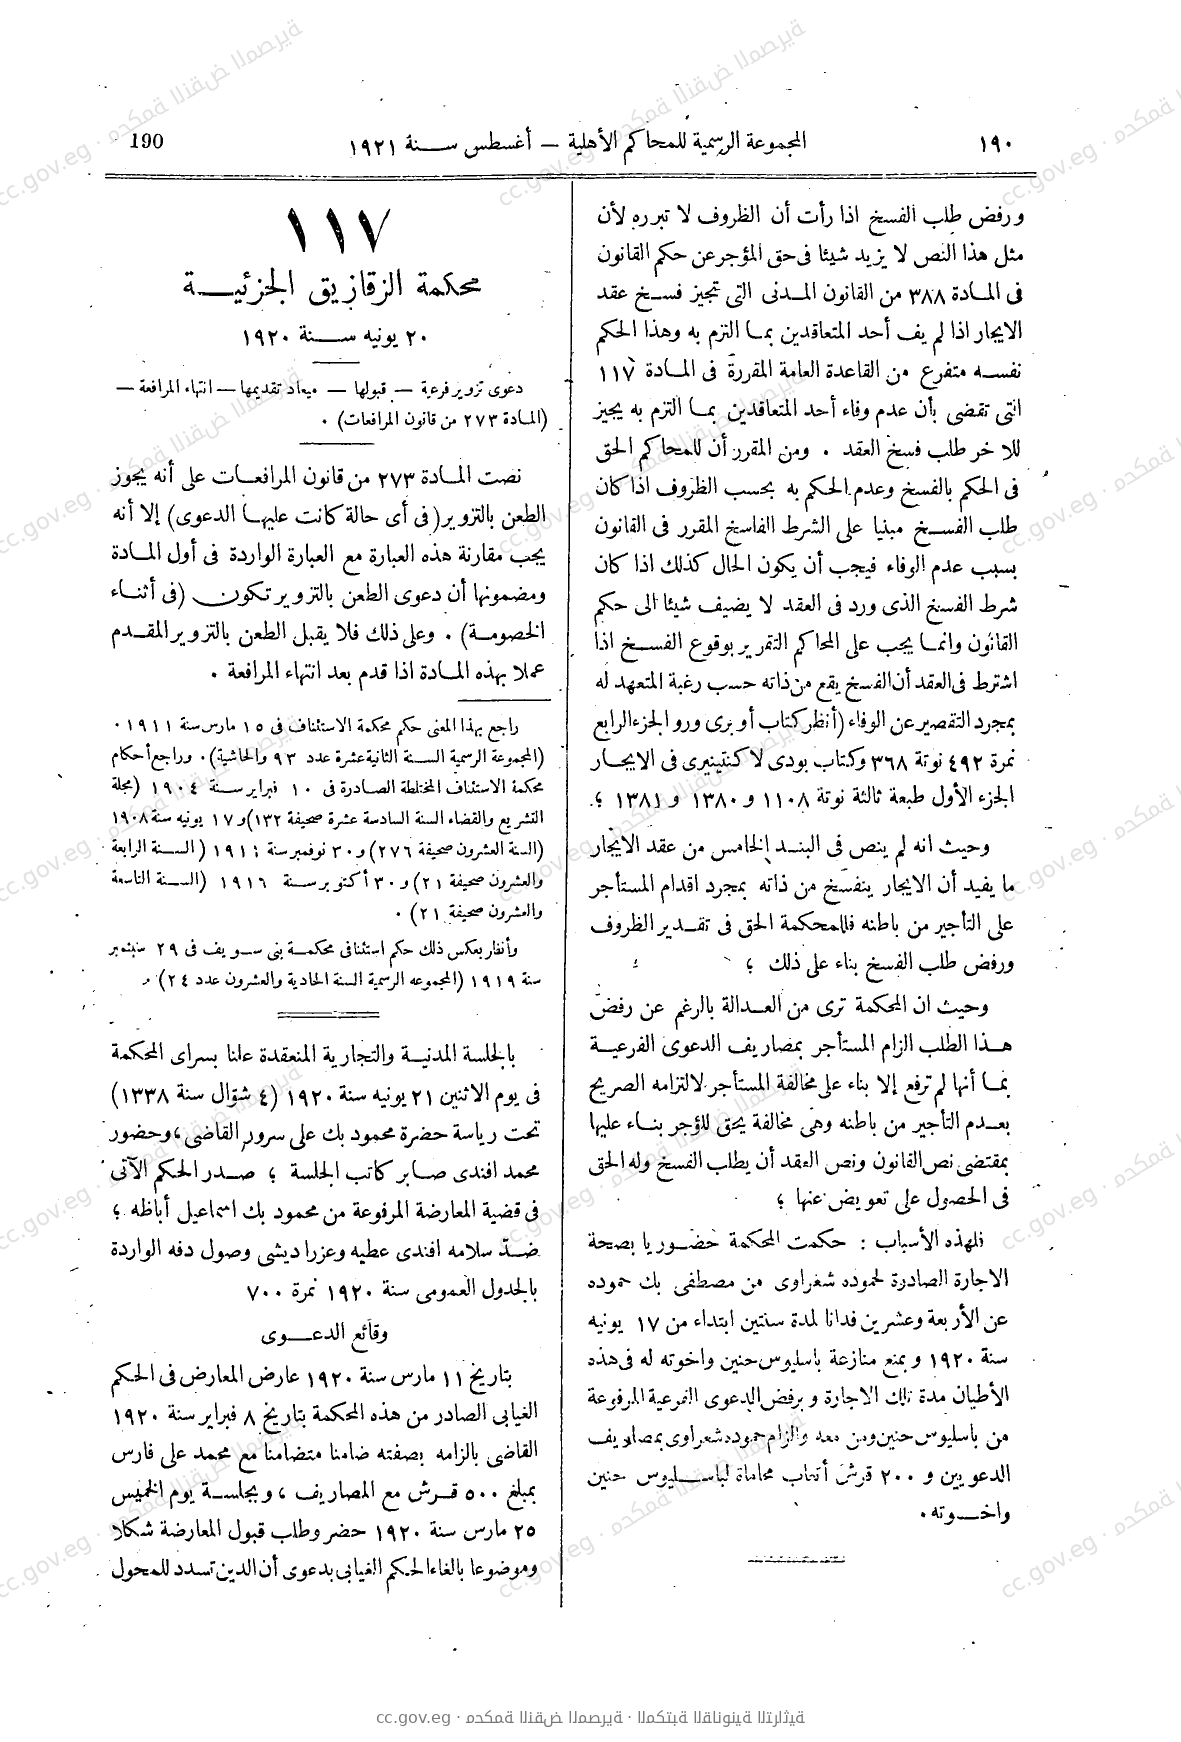 ١٩٠
المجموعة الرسمية للمحاكم الأهلية — أغسطس سنة ١٩٢١
190
ورفض طلب الفسخ اذا رأت أن الظروف لا تبرره لأن
مثل هذا النص لا يزيد شيئا فى حق المؤجر عن حكم القانون
فى المادة ٣٨٨ من القانون المدنى التى تجيز فسخ عقد
الايجار اذا لم يف أحد المتعاقدين بما التزم به وهذا الحكم
نفسه متفرع من القاعدة العامة المقررة فى المادة ١١٧
التى تقضى بأن عدم وفاء أحد المتعاقدين بما التزم به يجيز
للآخر طلب فسخ العقد . ومن المقرر أن للمحاكم الحق
فى الحكم بالفسخ وعدم الحكم به بحسب الظروف اذا كان
طلب الفسخ مبنيا على الشرط الفاسخ المقرر فى القانون
بسبب عدم الوفاء فيجب أن يكون الحال كذلك اذا كان
شرط الفسخ الذى ورد فى العقد لا يضيف شيئا الى حكم
القانون وانما يجب على المحاكم التقرير بوقوع الفسخ اذا
اشترط فى العقد أن الفسخ يقع من ذاته حسب رغبة المتعهد له
بمجرد التقصير عن الوفاء (أنظر كتاب أوبرى ورو الجزء الرابع
نمرة ٤٩٢ نوتة ٣٦٨ وكتاب بودى لا كنتينيرى فى الايجار
الجزء الأول طبعة ثالثة نوتة ١١٠٨ و ١٣٨٠ و ١٣٨١ ؛
وحيث انه لم ينص فى البند الخامس من عقد الايجار
ما يفيد أن الايجار ينفسخ من ذاته بمجرد اقدام المستأجر
على التأجير من باطنه فللمحكمة الحق فى تقدير الظروف
ورفض طلب الفسخ بناء على ذلك ؛
وحيث ان المحكمة ترى من العدالة بالرغم عن رفض
هذا الطلب الزام المستأجر بمصاريف الدعوى الفرعية
بما أنها لم ترفع إلا بناء على مخالفة المستأجر لالتزامه الصريح
بعدم التأجير من باطنه وهى مخالفة يحق للؤجر بناء عليها
بمقتضى نص القانون ونص العقد أن يطلب الفسخ وله الحق
فى الحصول على تعويض عنها ؛
فلهذه الأسباب : حكمت المحكمة حضوريا بصحة
الاجارة الصادرة لحموده شغراوى من مصطفى بك حموده
عن الأربعة وعشرين فدانا لمدة سنتين ابتداء من ١٧ يونيه
سنة ١٩٢٠ وبمنع منازعة باسليوس حنين واخوته له فى هذه
الأطيان مدة تلك الاجارة وبرفض الدعوى الفرعية المرفوعة
من باسليوس حنين ومن معه والزام حموده شعراوى بمصاريف
الدعويين و ٢٠٠ قرش أتعاب محاماة لباسليوس حنين
واخوته .
١١٧
محكمة الزقازيق الجزئية
٢٠ يونيه سنة ١٩٢٠
دعوى تزوير فرعية — قبولها — ميعاد تقديمها — انتهاء المرافعة —
(المادة ٢٧٣ من قانون المرافعات) .
نصت المادة ٢٧٣ من قانون المرافعات على أنه يجوز
الطعن بالتزوير (فى أى حالة كانت عليها الدعوى) إلا أنه
يجب مقارنة هذه العبارة مع العبارة الواردة فى أول المادة
ومضمونها أن دعوى الطعن بالتزوير تكون (فى أثناء
الخصومة) . وعلى ذلك فلا يقبل الطعن بالتزوير المقدم
عملا بهذه المادة اذا قدم بعد انتهاء المرافعة .
راجع بهذا المعنى حكم محكمة الاستئناف فى ١٥ مارس سنة ١٩١١ .
(المجموعة الرسمية السنة الثانية عشرة عدد ٩٣ والحاشية) . وراجع أحكام
محكمة الاستئناف المختلطة الصادرة فى ١٠ فبراير سنة ١٩٠٤ (مجلة
التشريع والقضاء السنة السادسة عشرة صحيفة ١٣٢) و ١٧ يونيه سنة ١٩٠٨
(السنة العشرون صحيفة ٢٧٦) و ٣٠ نوفمبر سنة ١٩١١ (السنة الرابعة
والعشرون صحيفة ٢١) و ٣٠ أكتوبر سنة ١٩١٦ (السنة التاسعة
والعشرون صحيفة ٢١) .
وأنظر بعكس ذلك حكم استئنافى محكمة بنى سويف فى ٢٩ سبتمبر
سنة ١٩١٩ (المجموعه الرسمية السنة الحادية والعشرون عدد ٢٤) .
بالجلسة المدنية والتجارية المنعقدة علنا بسراى المحكمة
فى يوم الاثنين ٢١ يونيه سنة ١٩٢٠ (٤ شؤال سنة ١٣٣٨)
تحت رياسة حضرة محمود بك على سرور القاضى ، وحضور
محمد افندى صابر كاتب الجلسة ؛ صدر الحكم الآتى
فى قضية المعارضة المرفوعة من محمود بك اسماعيل أباظه ؛
ضد سلامه افندى عطيه وعزرا ديشى وصول دفه الواردة
بالجدول العمومى سنة ١٩٢٠ نمرة ٧٠٠
وقائع الدعوى
بتاريخ ١١ مارس سنة ١٩٢٠ عارض المعارض فى الحكم
الغيابى الصادر من هذه المحكمة بتاريخ ٨ فبراير سنة ١٩٢٠
القاضى بالزامه بصفته ضامنا متضامنا مع محمد على فارس
بمبلغ ٥٠٠ قرش مع المصاريف ، وبجلسة يوم الخميس
٢٥ مارس سنة ١٩٢٠ حضر وطلب قبول المعارضة شكلا
وموضوعا بالغاء الحكم الغيابى بدعوى أن الدين تسدد للمحول
cc.gov.eg · محكمة النقض المصرية · المكتبة القانونية التراثية